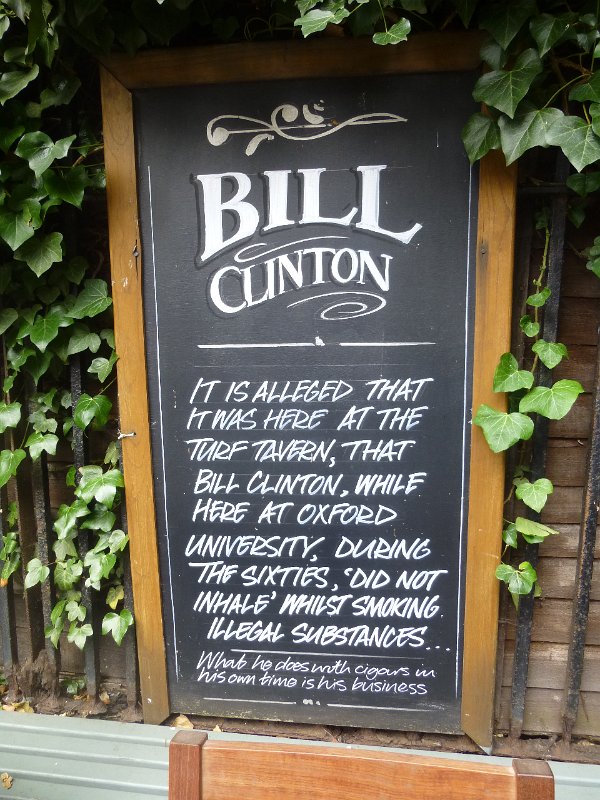 BILL
CLINTON
IT IS ALLEGED THAT
IT WAS HERE AT THE
TURF TAVERN, THAT
BILL CLINTON, WHILE
HERE AT OXFORD
UNIVERSITY, DURING
THE SIXTIES, 'DID NOT
INHALE' WHILST SMOKING
ILLEGAL SUBSTANCES...
What he does with cigars in
his own time is his business